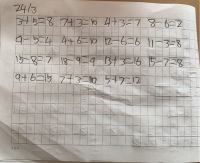 24/3
3+5=8 7+3=10 4+3=7 8-6=2
11-5=6 4+6=10 12-6=6 11-3=8
15-8=7 18-9=9 13+3=16 15-7=8
9+6=15 7+3=10 5+7=12